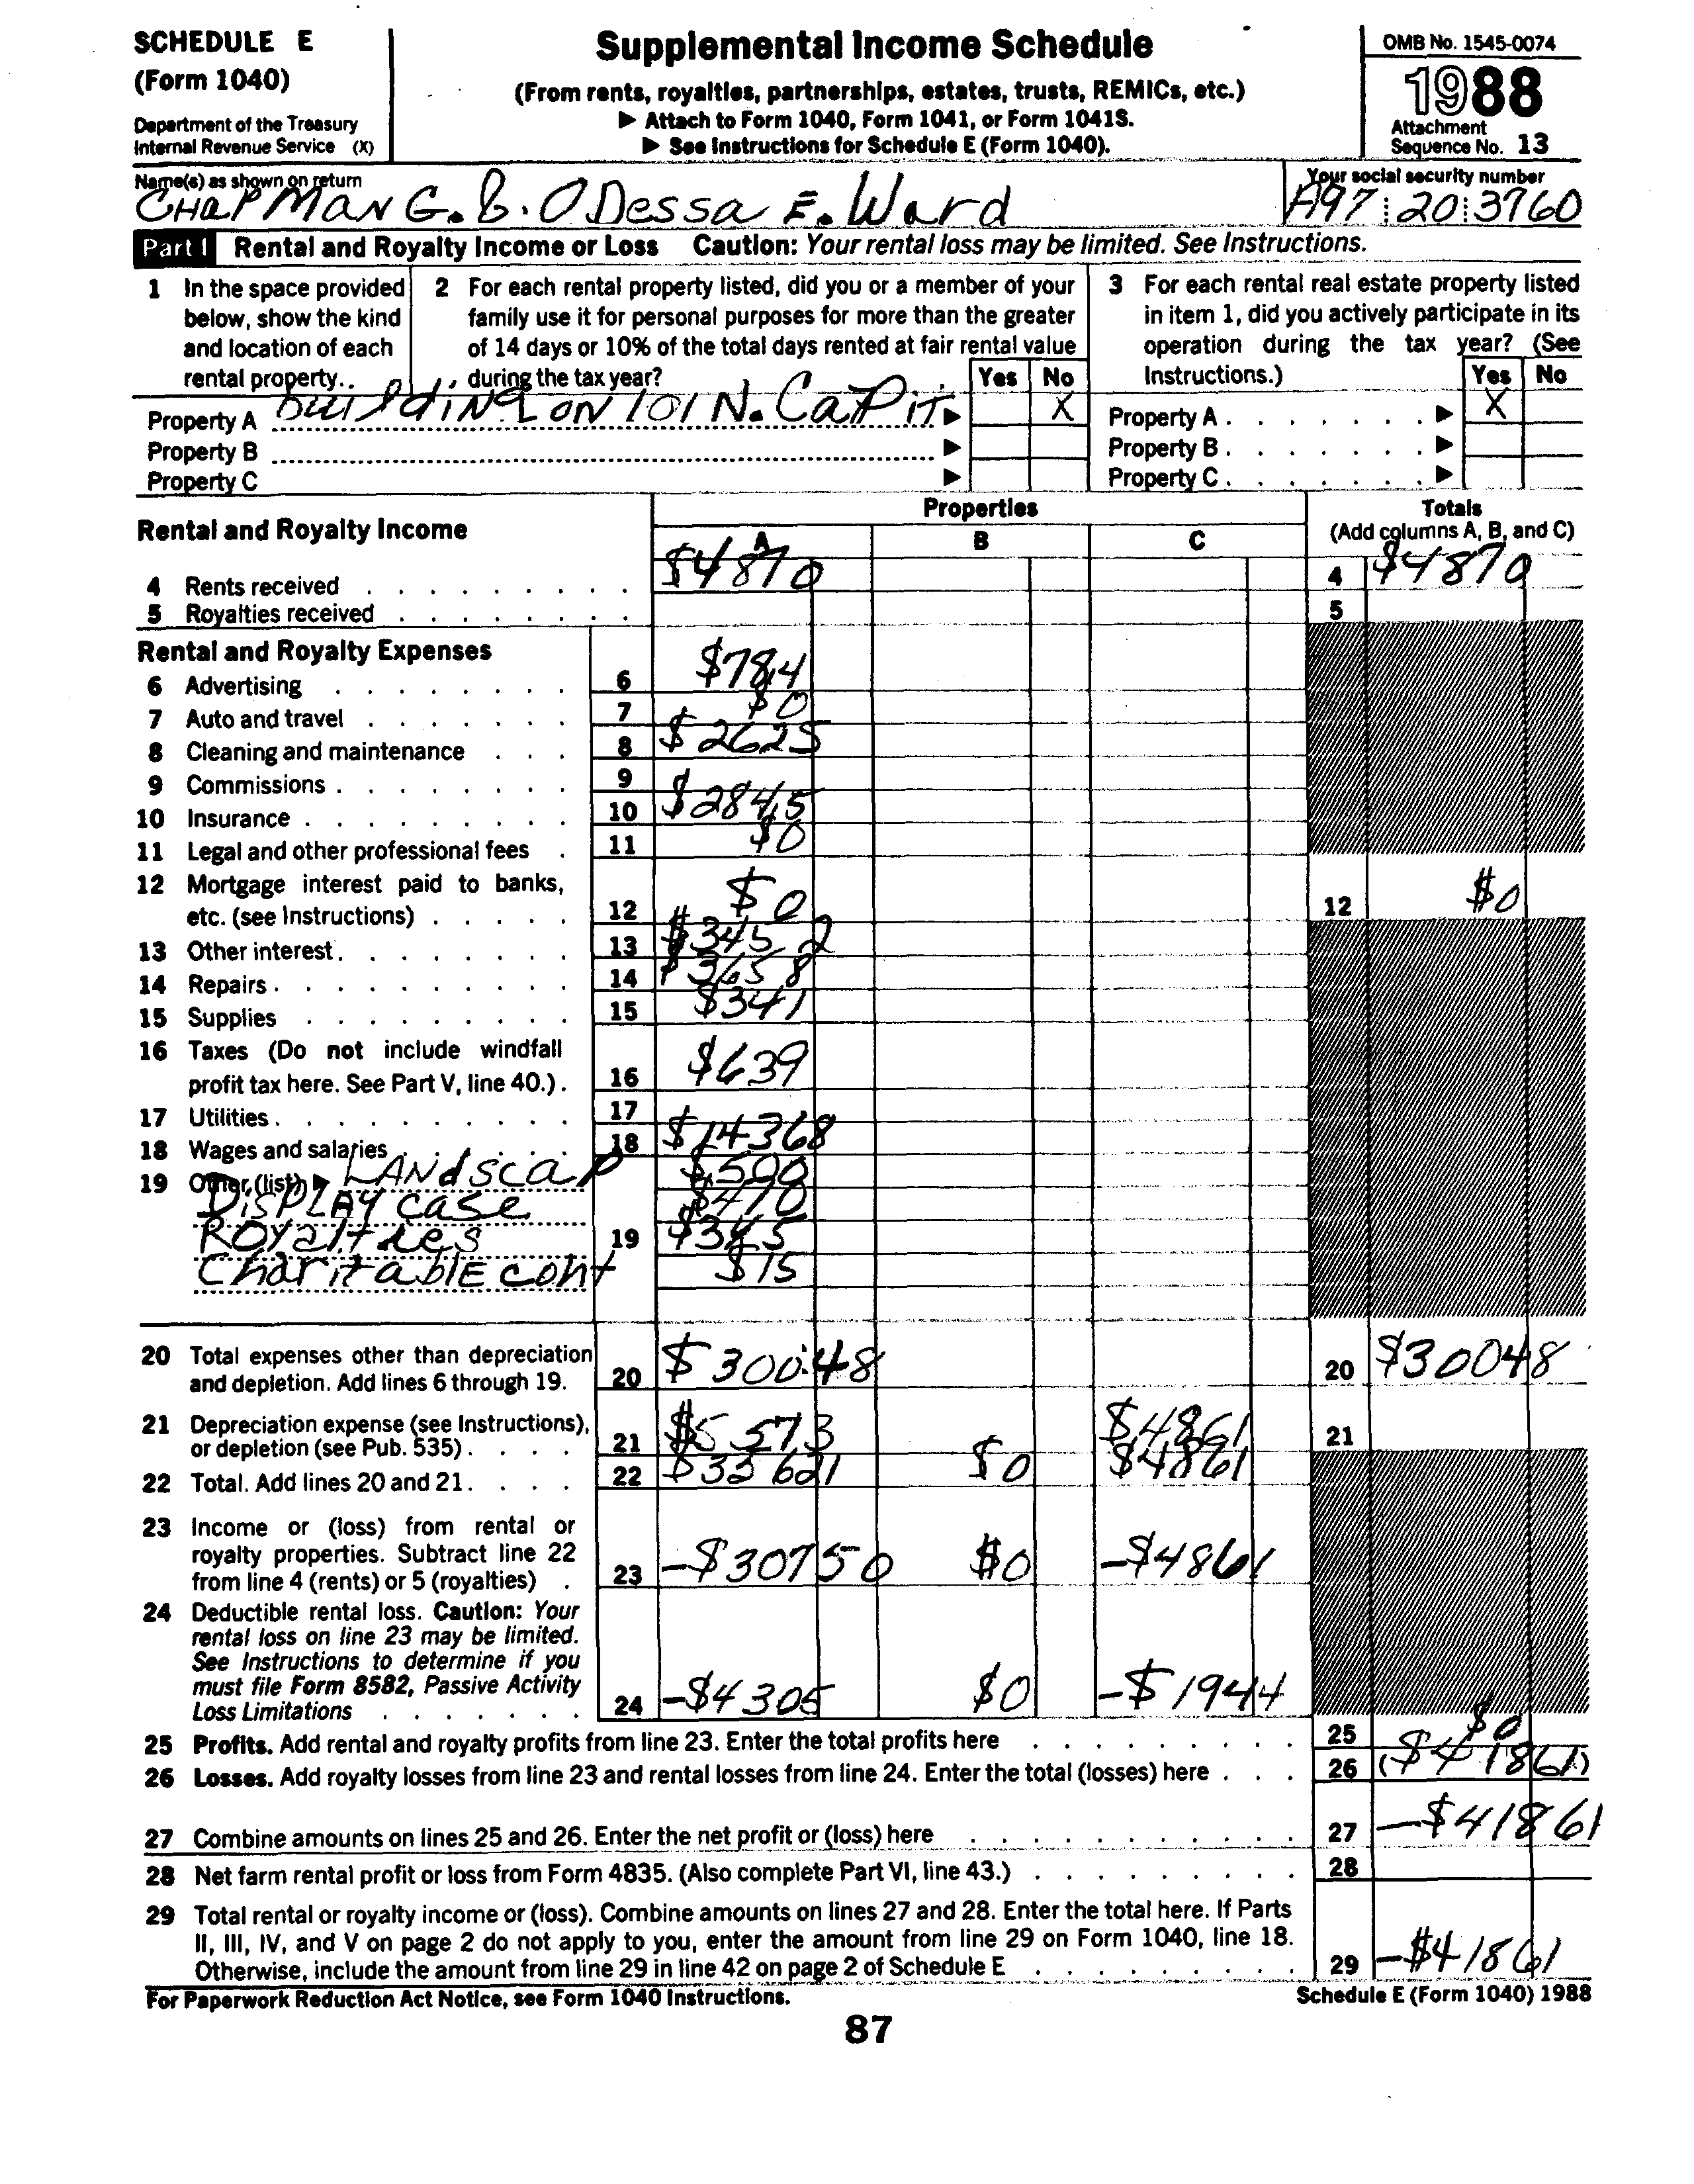 SCHEDULE E
(Form 1040)
Department of the Treasury
Internal Revenue Service (X)
Supplemental Income Schedule
(From rents, royalties, partnerships, estates, trusts, REMICs, etc.)
▶ Attach to Form 1040, Form 1041, or Form 1041S.
▶ See Instructions for Schedule E (Form 1040).
OMB No. 1545-0074
1988
Attachment
Sequence No. 13
Name(s) as shown on return
CHAPMAN G. & ODessa E. Ward
Your social security number
A97 20 3760
Part I Rental and Royalty Income or Loss Caution: Your rental loss may be limited. See Instructions.
1 In the space provided
below, show the kind
and location of each
rental property..
2 For each rental property listed, did you or a member of your
family use it for personal purposes for more than the greater
of 14 days or 10% of the total days rented at fair rental value
during the tax year?
Yes No
3 For each rental real estate property listed
in item 1, did you actively participate in its
operation during the tax year? (See
Instructions.)
Yes No
Property A building on 101 N. CaPit ▶ X
Property B ▶
Property C ▶
Property A . . . . . . . ▶ X
Property B . . . . . . . ▶
Property C . . . . . . . ▶
Rental and Royalty Income
Properties
A B C
Totals
(Add columns A, B, and C)
4 Rents received . . . . . . . . . $4870 4 $4870
5 Royalties received . . . . . . . . 5
Rental and Royalty Expenses
6 Advertising . . . . . . . . 6 $784
7 Auto and travel . . . . . . . 7 $0
8 Cleaning and maintenance . . . 8 $2625
9 Commissions . . . . . . . . 9
10 Insurance . . . . . . . . . 10 $2845
11 Legal and other professional fees . 11 $0
12 Mortgage interest paid to banks,
etc. (see Instructions) . . . . . 12 $0 12 $0
13 Other interest. . . . . . . . 13 $3452
14 Repairs . . . . . . . . . . 14 $3658
15 Supplies . . . . . . . . . 15 $341
16 Taxes (Do not include windfall
profit tax here. See Part V, line 40.) . 16 $639
17 Utilities . . . . . . . . . . 17
18 Wages and salaries . . . . . . 18 $14368
19 Other (list) ▶ LANdscap $500
DiSPLAY case $470
Royalties 19 $345
CharitablE cont $15
20 Total expenses other than depreciation
and depletion. Add lines 6 through 19. 20 $30048 20 $30048
21 Depreciation expense (see Instructions),
or depletion (see Pub. 535) . . . . 21 $5573 $4861 21
22 Total. Add lines 20 and 21. . . . . 22 $35621 $0 $4861
23 Income or (loss) from rental or
royalty properties. Subtract line 22
from line 4 (rents) or 5 (royalties) . 23 -$30750 $0 -$4861
24 Deductible rental loss. Caution: Your
rental loss on line 23 may be limited.
See Instructions to determine if you
must file Form 8582, Passive Activity
Loss Limitations . . . . . . . 24 -$4305 $0 -$1944
25 Profits. Add rental and royalty profits from line 23. Enter the total profits here . . . . . . . . . 25 $0
26 Losses. Add royalty losses from line 23 and rental losses from line 24. Enter the total (losses) here . . . 26 ($41861)
27 Combine amounts on lines 25 and 26. Enter the net profit or (loss) here . . . . . . . . . . . 27 -$41861
28 Net farm rental profit or loss from Form 4835. (Also complete Part VI, line 43.) . . . . . . . . . 28
29 Total rental or royalty income or (loss). Combine amounts on lines 27 and 28. Enter the total here. If Parts
II, III, IV, and V on page 2 do not apply to you, enter the amount from line 29 on Form 1040, line 18.
Otherwise, include the amount from line 29 in line 42 on page 2 of Schedule E . . . . . . . . . 29 -$41861
For Paperwork Reduction Act Notice, see Form 1040 Instructions.
Schedule E (Form 1040) 1988
87